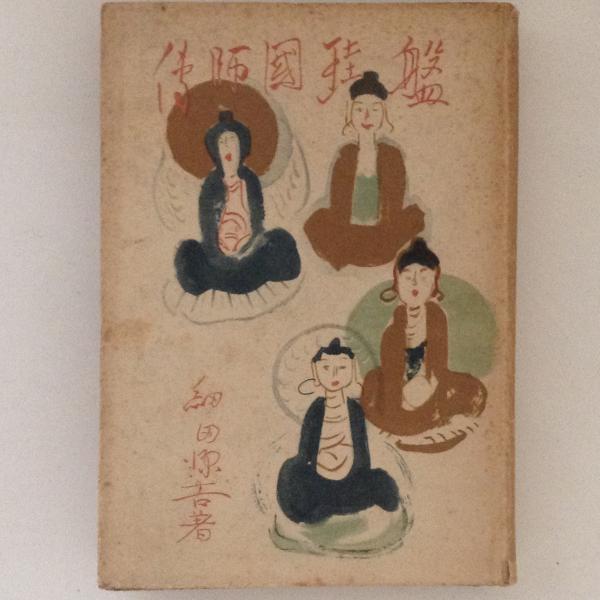 盤珪國師傳
細田源吉著